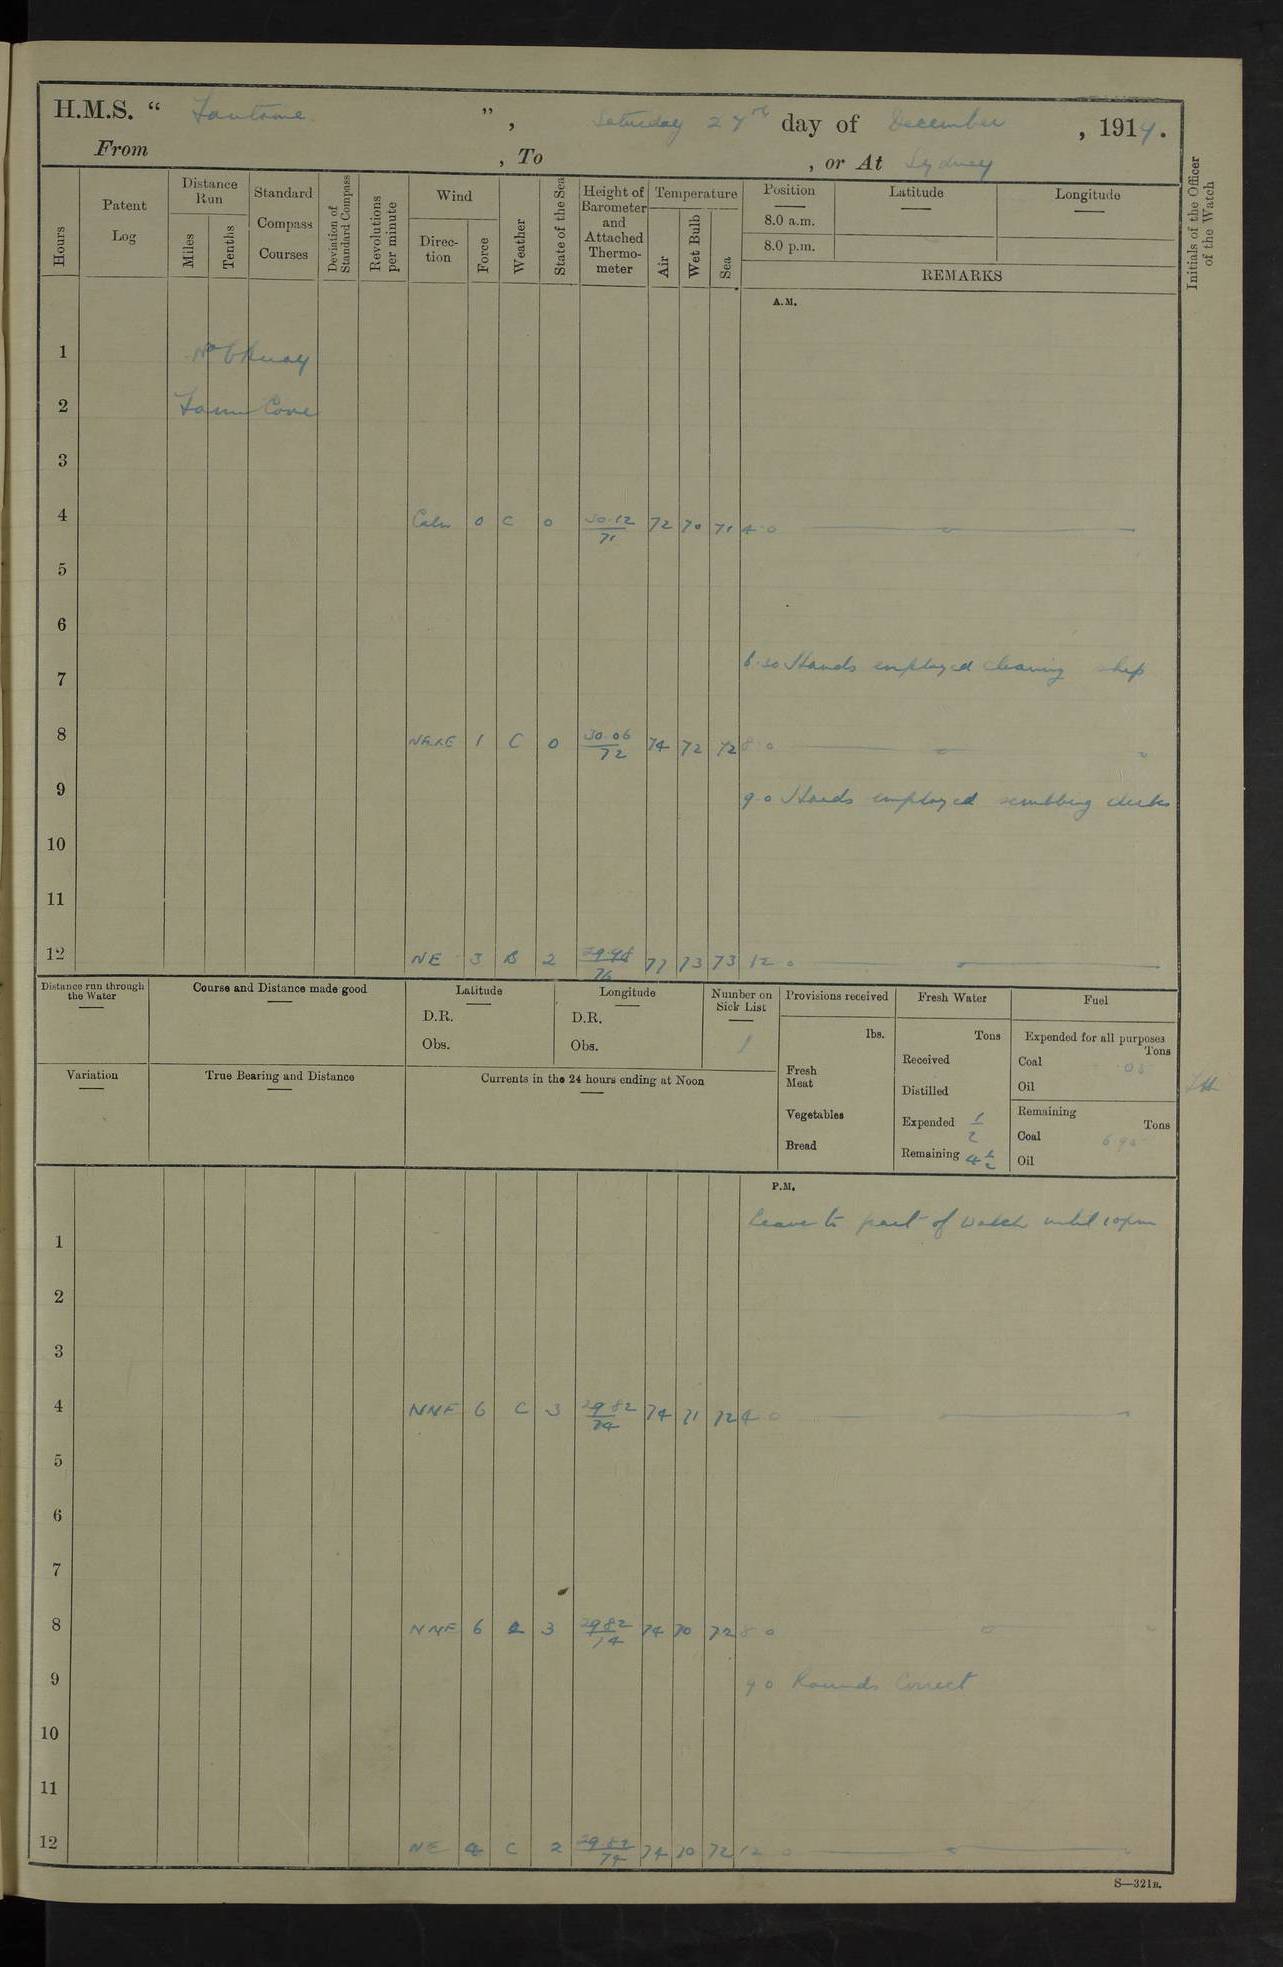 H.M.S. “ Fantome ” , Saturday 27th day of December , 1914.
From , To , or At Sydney
Hours
Patent Log
Distance Run
Miles
Tenths
Standard Compass Courses
Deviation of Standard Compass
Revolutions per minute
Wind
Direction
Force
Weather
State of the Sea
Height of Barometer and Attached Thermometer
Temperature
Air
Wet Bulb
Sea
Position
8.0 a.m.
8.0 p.m.
Latitude
Longitude
REMARKS
Initials of the Officer of the Watch
A.M.
1 No 6 Buoy
2 Farm Cove
3
4 Calm 0 C 0 30.12/71 72 70 71 4.0
5
6
6.30 Hands employed cleaning ship
7
8 1 C 0 30.06/72 74 72 72 8.0
9 9.0 Hands employed scrubbing decks
10
11
12 NE 3 B 2 29.98/76 77 73 73 12.0
Distance run through the Water
Course and Distance made good
Latitude
D.R.
Obs.
Longitude
D.R.
Obs.
Number on Sick List
1
Provisions received
lbs.
Fresh Meat
Vegetables
Bread
Fresh Water
Tons
Received
Distilled
Expended 1/2
Remaining 4 1/2
Fuel
Expended for all purposes
Tons
Coal
Oil
Remaining
Tons
Coal
Oil
Variation
True Bearing and Distance
Currents in the 24 hours ending at Noon
P.M.
Leave to part of watch until 10pm
1
2
3
4 NNE 6 C 3 29.82/74 74 71 72 4.0
5
6
7
8 NNE 6 C 3 29.82/74 74 70 72 8.0
9 9.0 Rounds Correct
10
11
12 NE 4 C 2 29.82/74 74 70 72 12.0
S—321B.